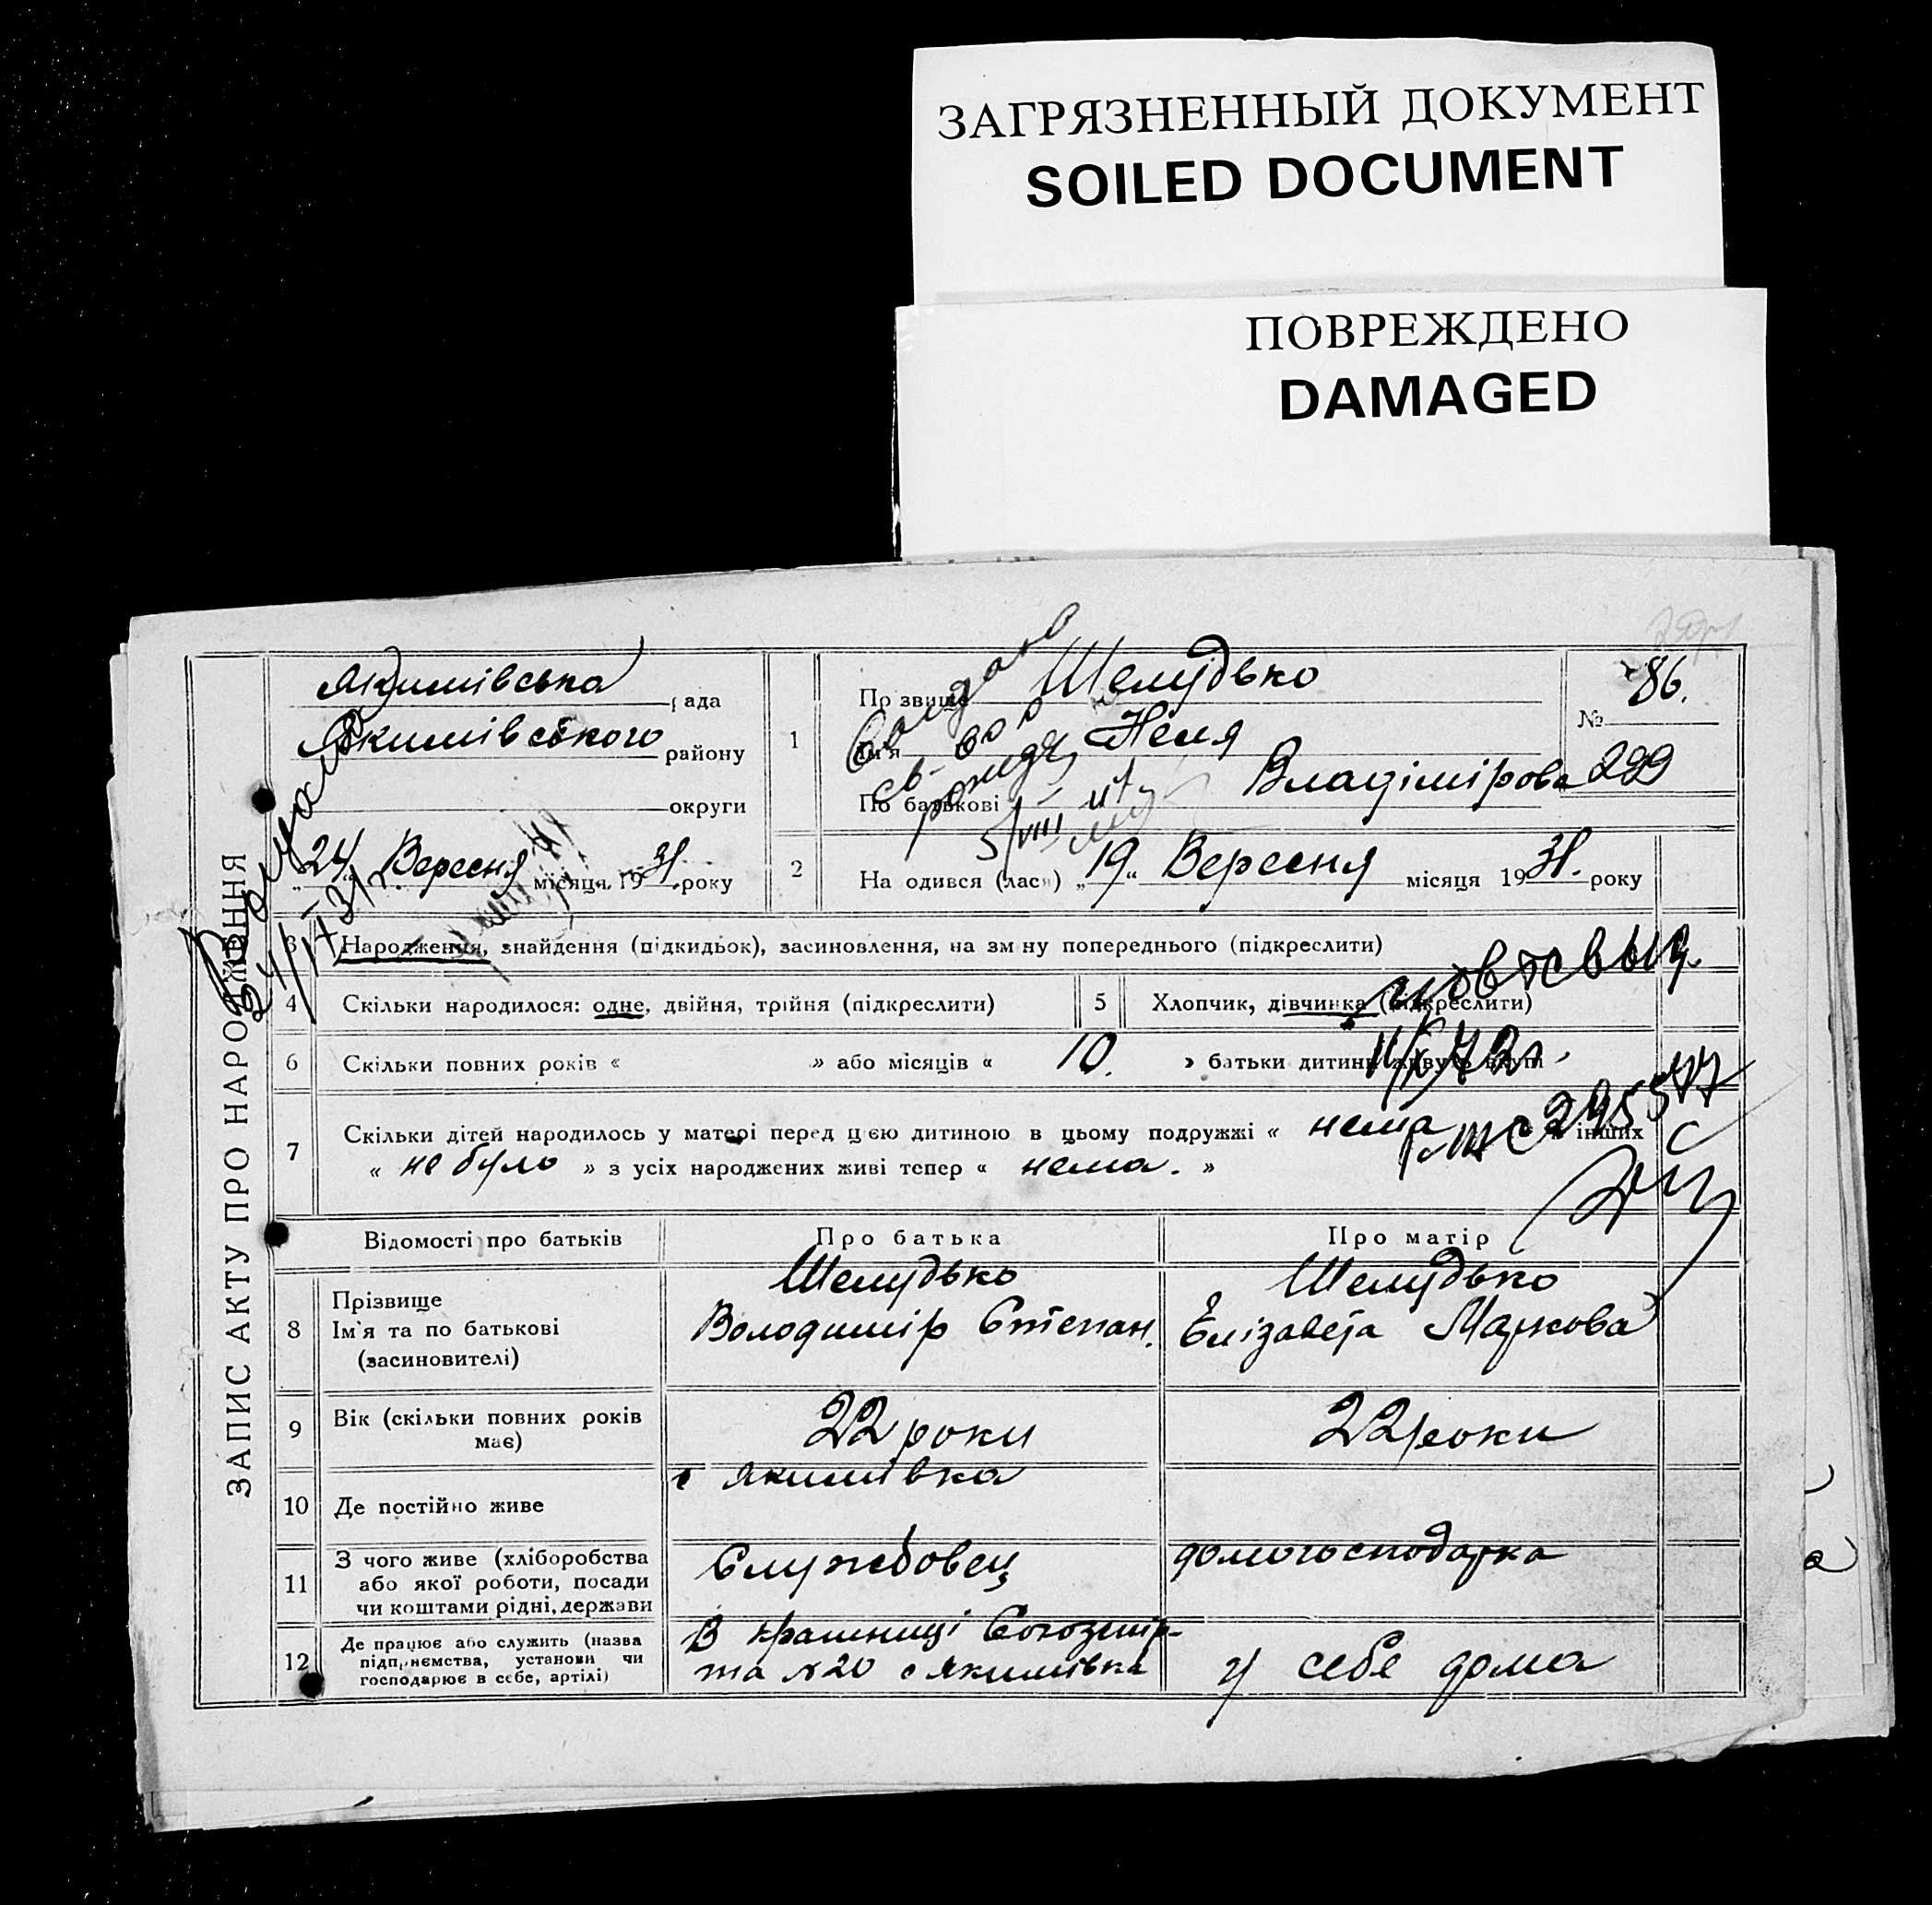 ЗАГРЯЗНЕННЫЙ ДОКУМЕНТ
SOILED DOCUMENT
ПОВРЕЖДЕНО
DAMAGED
ЗАПИС АКТУ ПРО НАРОДЖЕННЯ
Якимівська рада
Якимівського району
округи
„24“ Вересня місяця 1931 року
1
Прізвище Шелудько
Ім'я Неля
По батькові Владімірова
№ 86.
299
2
На одився (лася) „19“ Вересня місяця 1931. року
3 Народження, знайдення (підкидьок), засиновлення, на зм ну попереднього (підкреслити)
4 Скільки народилося: одне, двійня, трійня (підкреслити)
5 Хлопчик, дівчинка (підкреслити)
6 Скільки повних років « » або місяців « 10. » батьки дитини живуть
7 Скільки дітей народилось у матері перед цією дитиною в цьому подружжі « нема інших
« не було » з усіх народжених живі тепер « нема. »
Відомості про батьків
Про батька
Про матір
8 Прізвище
Ім'я та по батькові
(засиновителі)
Шелудько
Володимір Степан.
Шелудько
Елізавета Маркова
9 Вік (скільки повних років
має)
22 роки
22 роки
10 Де постійно живе
с Якимівка
11 З чого живе (хліборобства
або якої роботи, посади
чи коштами рідні, держави
Службовец
домогосподарка
12 Де працює або служить (назва
підприємства, установи чи
господарює в себе, артілі)
В крамниці
та №20 с Якимівка
у себе дома